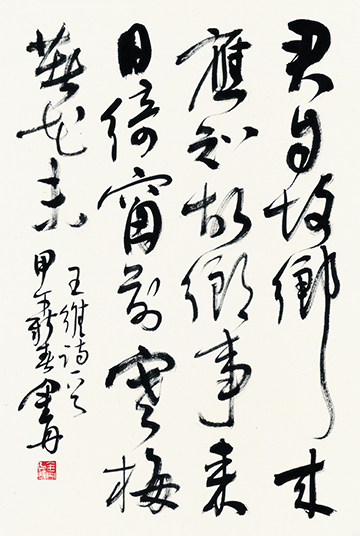 君自故鄉来
應知故鄉事来
日綺窗前寒梅
著花未
王維詩一首
甲新春金丹